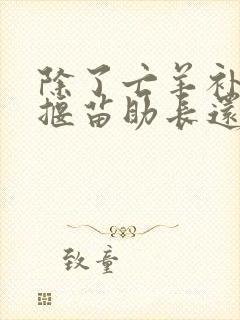 除了亡羊补
揠苗助长还
致童